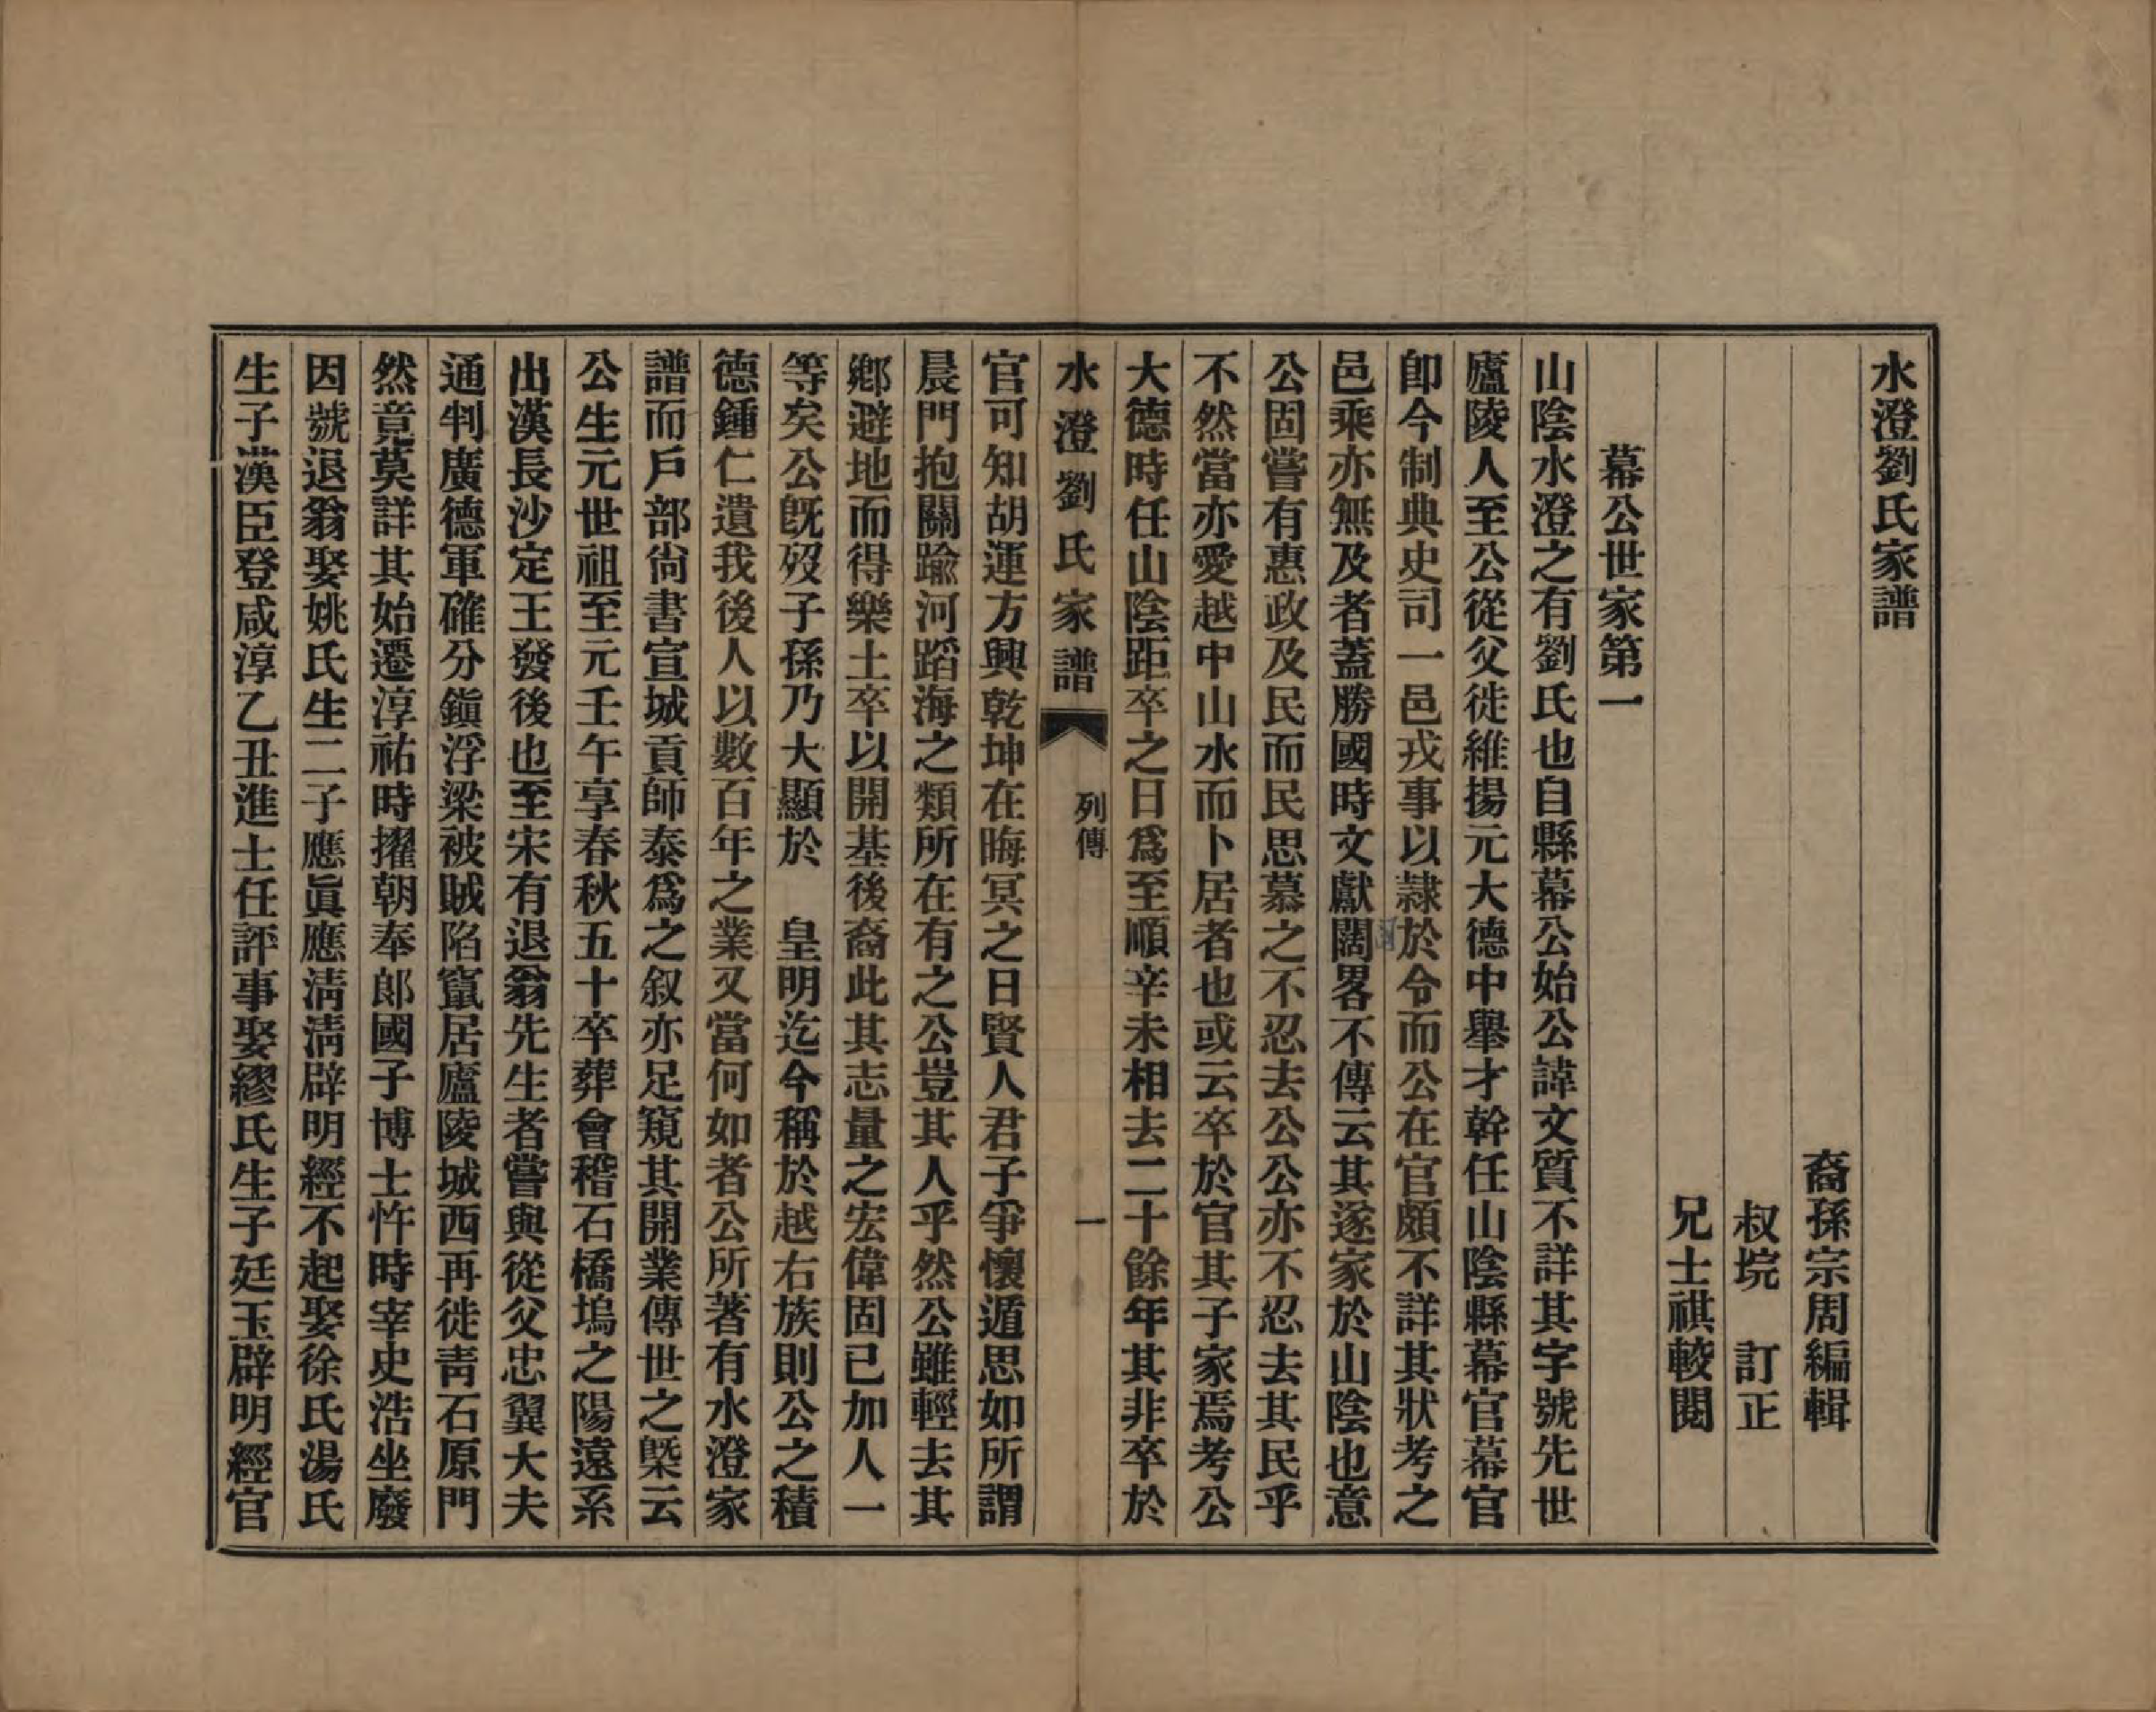 水澄劉氏家譜
裔孫宗周編輯
叔垸　訂正
兄士祺較閱
幕公世家第一
山陰水澄之有劉氏也自縣幕公始公諱文質不詳其字號先世
廬陵人至公從父徙維揚元大德中舉才幹任山陰縣幕官幕官
卽今制典史司一邑戎事以隷於令而公在官頗不詳其狀考之
邑乘亦無及者蓋勝國時文獻闊畧不傳云其遂家於山陰也意
公固嘗有惠政及民而民思慕之不忍去公公亦不忍去其民乎
不然當亦愛越中山水而卜居者也或云卒於官其子家焉考公
大德時任山陰距卒之日爲至順辛未相去二十餘年其非卒於
水澄劉氏家譜　列傳　一
官可知胡運方興乾坤在晦冥之日賢人君子爭懷遁思如所謂
晨門抱關踰河蹈海之類所在有之公豈其人乎然公雖輕去其
鄉避地而得樂土卒以開基後裔此其志量之宏偉固已加人一
等矣公旣歿子孫乃大顯於　皇明迄今稱於越右族則公之積
德鍾仁遺我後人以數百年之業又當何如者公所著有水澄家
譜而戶部尙書宣城貢師泰爲之叙亦足窺其開業傳世之槩云
公生元世祖至元壬午享春秋五十卒葬會稽石橋塢之陽遠系
出漢長沙定王發後也至宋有退翁先生者嘗與從父忠翼大夫
通判廣德軍確分鎭浮梁被賊陷竄居廬陵城西再徙靑石原門
然竟莫詳其始遷淳祐時擢朝奉郞國子博士忤時宰史浩坐廢
因號退翁娶姚氏生二子應眞應淸淸辟明經不起娶徐氏湯氏
生子漢臣登咸淳乙丑進士任評事娶繆氏生子廷玉辟明經官